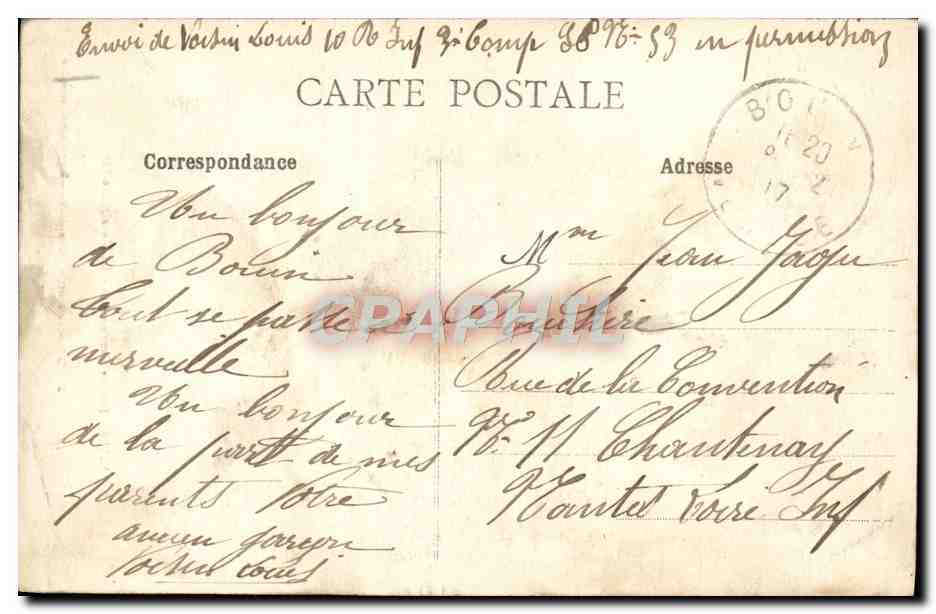 Envoi de Voisin Louis 10 R Inf 3e Comp SP No 53 en permission
CARTE POSTALE
Correspondance
Adresse
Un bonjour
de Bouin
tout se passe a
merveille
Un bonjour
de la part de mes
parents Votre
ancien garçon
Voisin Louis
Mm Jean Jagu
Rue de la Convention
No 11 Chantenay
Nantes Loire Inf
CPAPHIL